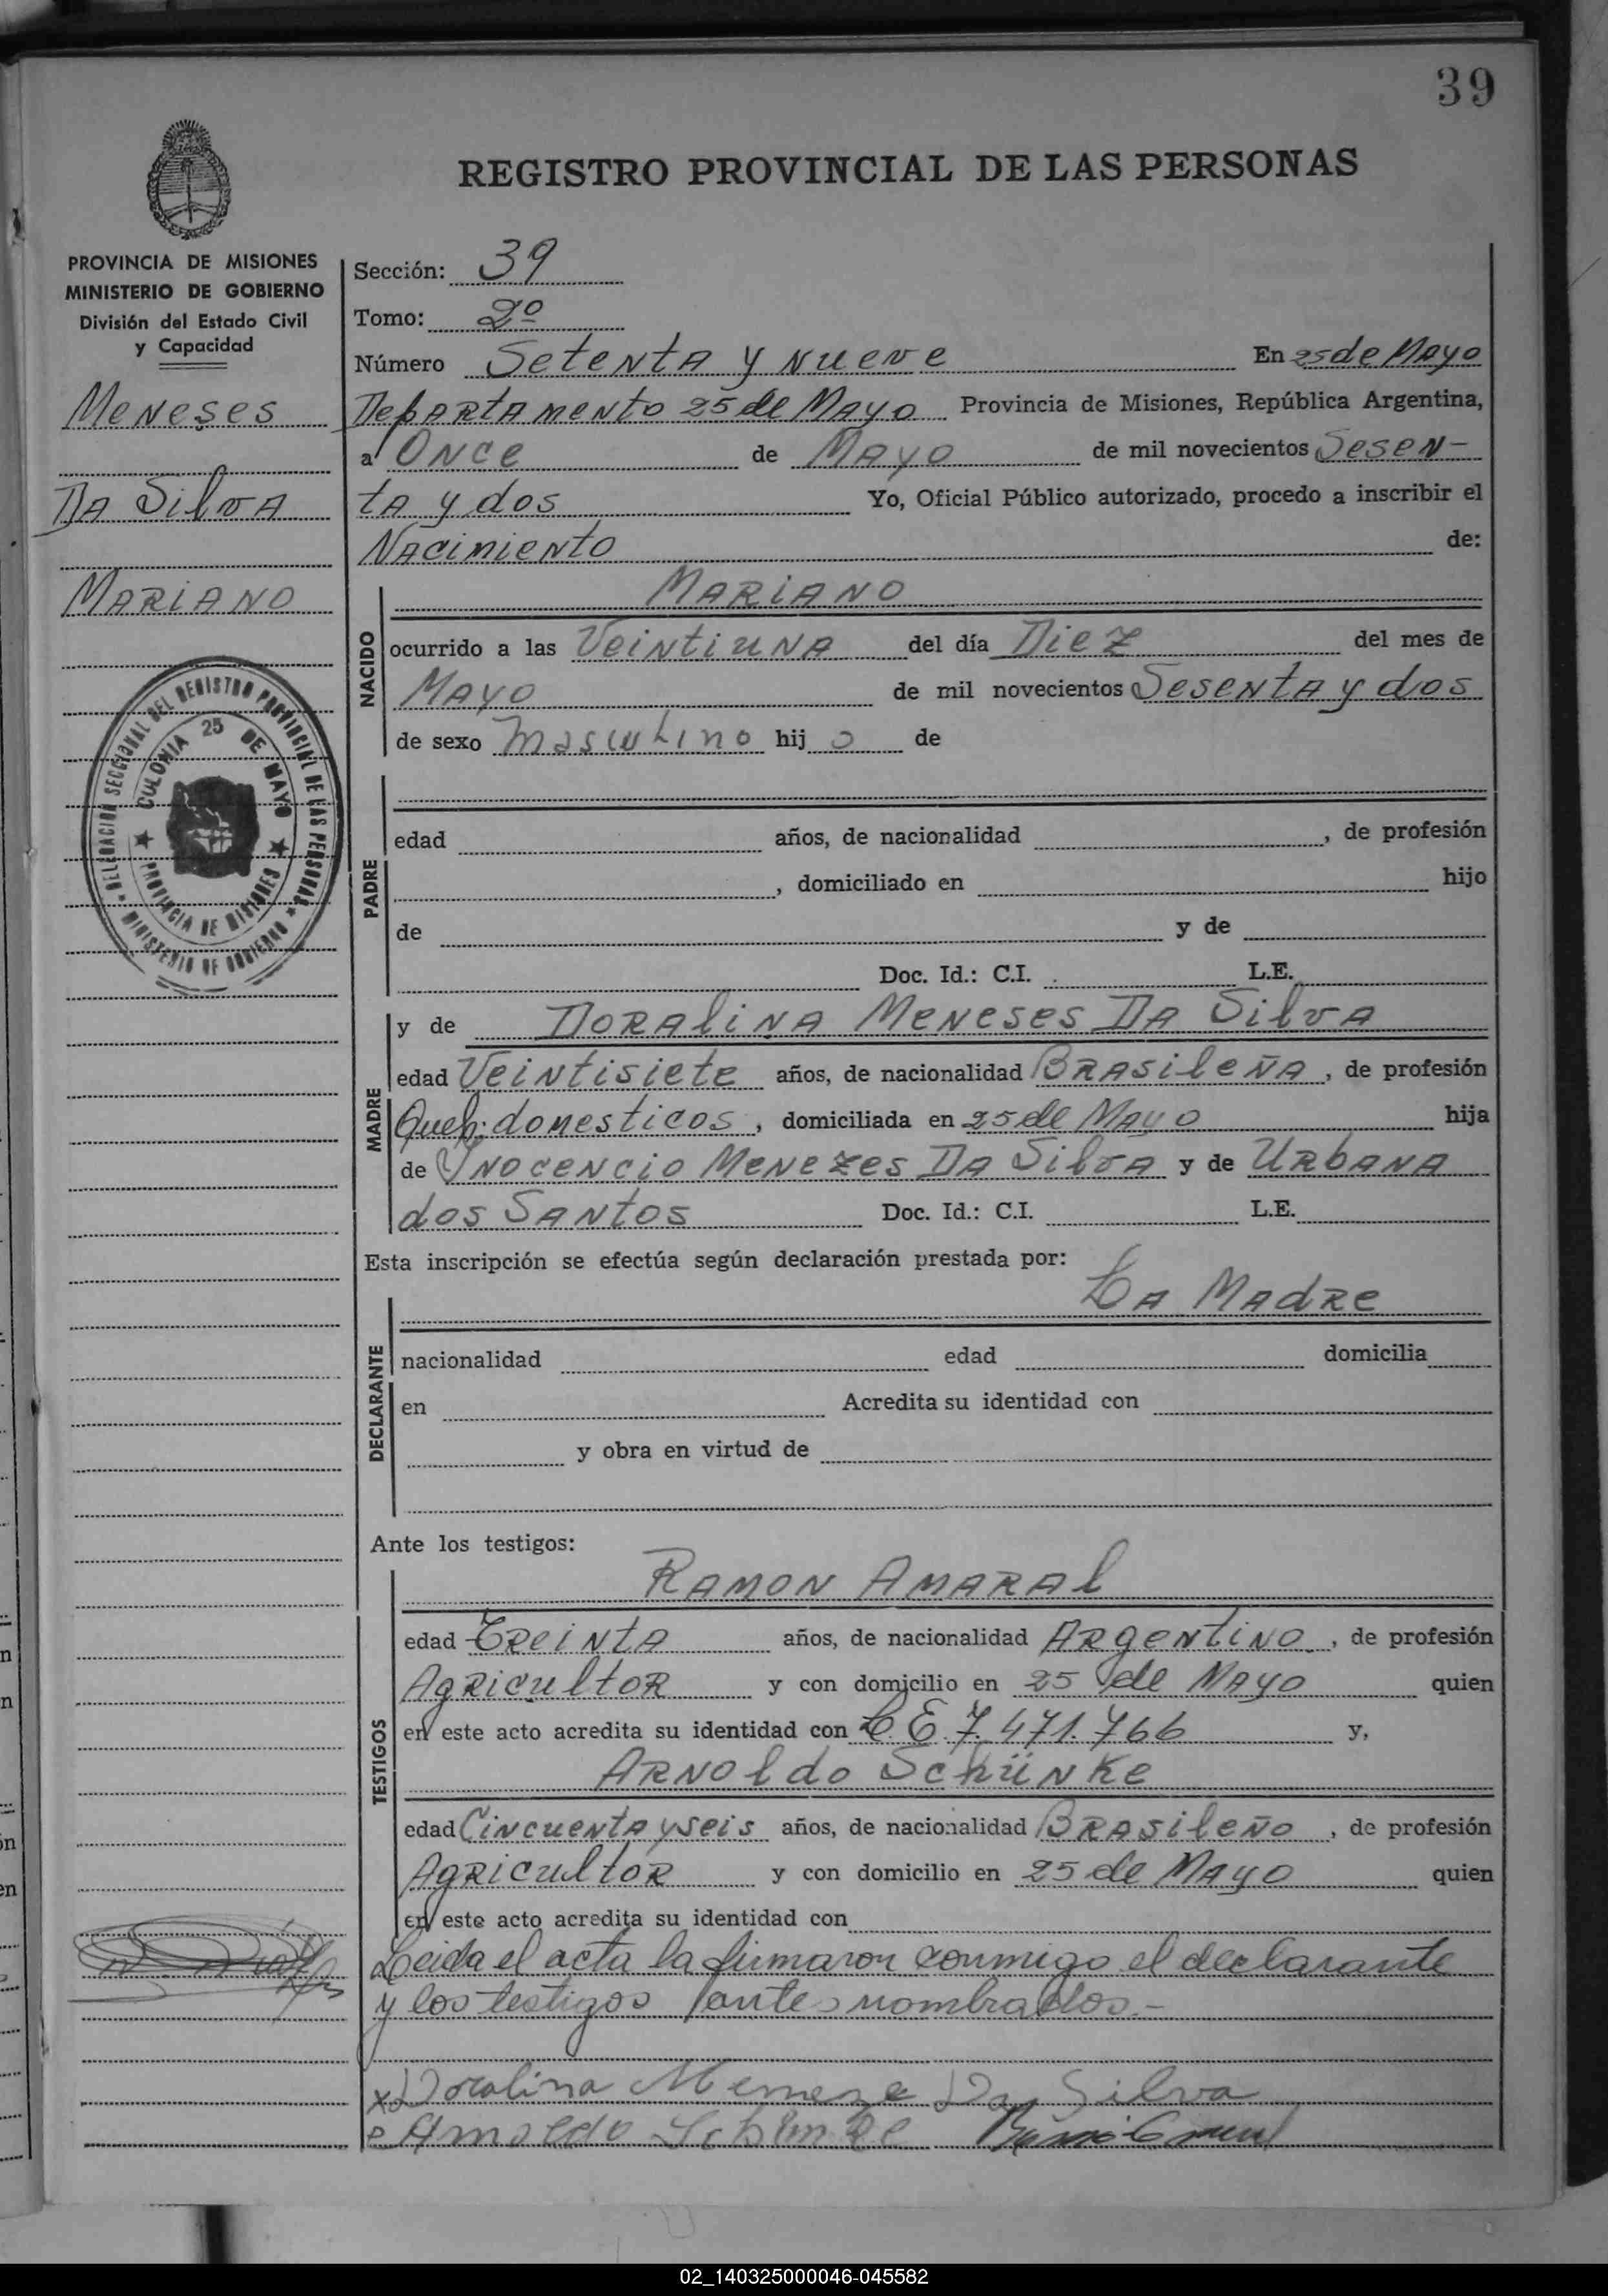 39
REGISTRO PROVINCIAL DE LAS PERSONAS
PROVINCIA DE MISIONES
MINISTERIO DE GOBIERNO
División del Estado Civil
y Capacidad
Meneses
Da Silva
Mariano
DELEGACION SECCIONAL DEL REGISTRO PROVINCIAL DE LAS PERSONAS
MINISTERIO DE GOBIERNO
COLONIA 25 DE MAYO
PROVINCIA DE MISIONES
Sección: 39
Tomo: 2º
Número Setenta y nueve En 25 de Mayo
Departamento 25 de Mayo Provincia de Misiones, República Argentina,
a Once de Mayo de mil novecientos Sesen-
ta y dos Yo, Oficial Público autorizado, procedo a inscribir el
Nacimiento de:
NACIDO
Mariano
ocurrido a las Veintiuna del día Diez del mes de
Mayo de mil novecientos Sesenta y dos
de sexo masculino hij o de
PADRE
edad años, de nacionalidad , de profesión
, domiciliado en hijo
de y de
Doc. Id.: C.I. L.E.
MADRE
y de Doralina Meneses Da Silva
edad Veintisiete años, de nacionalidad Brasileña, de profesión
Queh. domesticos, domiciliada en 25 de Mayo hija
de Ynocencio Menezes Da Silva y de Urbana
dos Santos Doc. Id.: C.I. L.E.
Esta inscripción se efectúa según declaración prestada por:
DECLARANTE
La Madre
nacionalidad edad domicilia
en Acredita su identidad con
y obra en virtud de
Ante los testigos:
TESTIGOS
Ramon Amaral
edad Treinta años, de nacionalidad Argentino, de profesión
Agricultor y con domicilio en 25 de Mayo quien
en este acto acredita su identidad con L.E. 7.471.766 y,
Arnoldo Schünke
edad Cincuenta y seis años, de nacionalidad Brasileño, de profesión
Agricultor y con domicilio en 25 de Mayo quien
en este acto acredita su identidad con
Leida el acta la firmaron conmigo el declarante
y los testigos antes nombrados.-
x Doralina Meneze Da Silva
Arnoldo Schünke
02_140325000046-045582